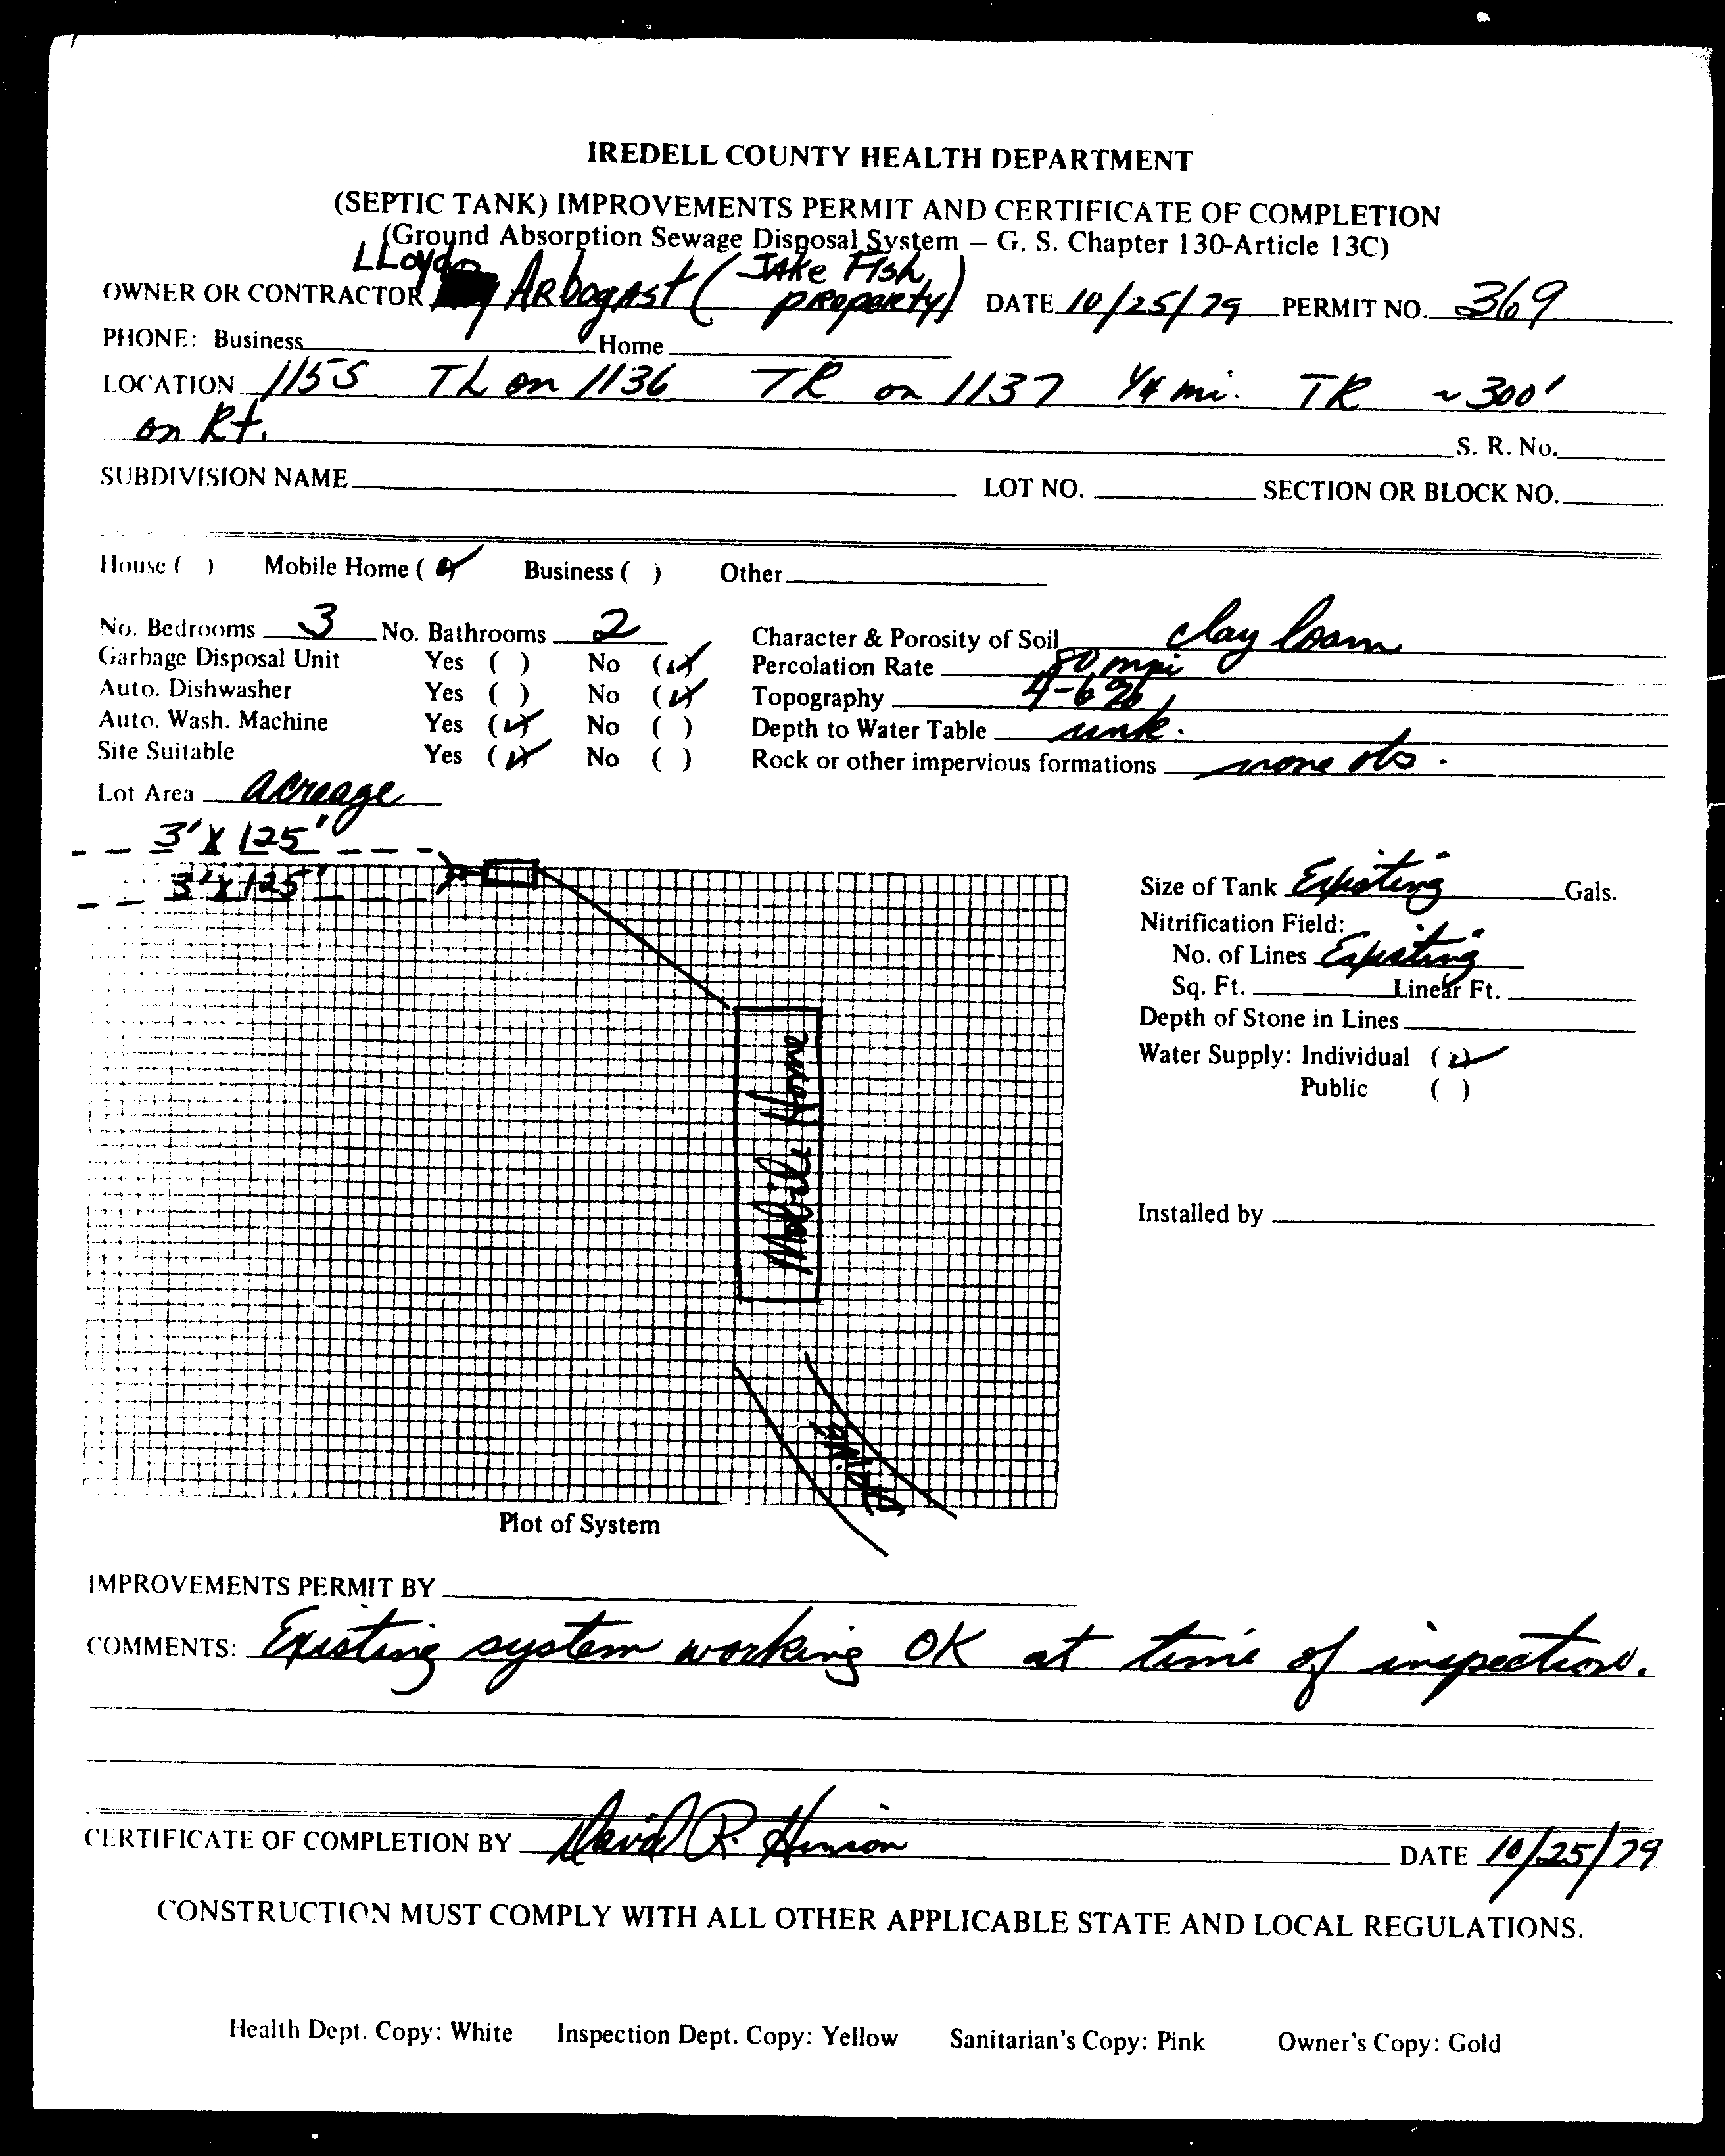 IREDELL COUNTY HEALTH DEPARTMENT
(SEPTIC TANK) IMPROVEMENTS PERMIT AND CERTIFICATE OF COMPLETION
(Ground Absorption Sewage Disposal System – G. S. Chapter 130-Article 13C)
OWNER OR CONTRACTOR LLoyd Arbogast (Jake Fish property) DATE 10/25/79 PERMIT NO. 369
PHONE: Business Home
LOCATION 115S TL on 1136 TR on 1137 1/4 mi. TR ~300'
on Rt. S. R. No.
SUBDIVISION NAME LOT NO. SECTION OR BLOCK NO.
House ( ) Mobile Home (✓) Business ( ) Other
No. Bedrooms 3 No. Bathrooms 2 Character & Porosity of Soil clay loam
Garbage Disposal Unit Yes ( ) No (✓) Percolation Rate 80 mpi
Auto. Dishwasher Yes ( ) No (✓) Topography 4-6%
Auto. Wash. Machine Yes (✓) No ( ) Depth to Water Table unk.
Site Suitable Yes (✓) No ( ) Rock or other impervious formations none obs.
Lot Area acreage
3' X 125'
3' X 125'
Size of Tank Existing Gals.
Nitrification Field:
No. of Lines Existing
Sq. Ft. Linear Ft.
Depth of Stone in Lines
Water Supply: Individual (✓)
Public ( )
Installed by
Mobile Home
drive
Plot of System
IMPROVEMENTS PERMIT BY
COMMENTS: Existing system working OK at time of inspection.
CERTIFICATE OF COMPLETION BY David R. Hinson DATE 10/25/79
CONSTRUCTION MUST COMPLY WITH ALL OTHER APPLICABLE STATE AND LOCAL REGULATIONS.
Health Dept. Copy: White Inspection Dept. Copy: Yellow Sanitarian's Copy: Pink Owner's Copy: Gold